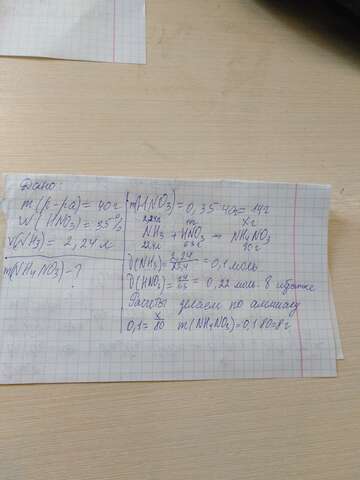 Дано:
m(р-ра) = 40г
W(HNO₃) = 35%
V(NH₃) = 2,24 л
m(NH₄NO₃) - ?
m(HNO₃) = 0,35·40 = 14г
2,24л m xг
NH₃ + HNO₃ → NH₄NO₃
22,4л 63г 80г
ν(NH₃) = 2,24/22,4 = 0,1 моль
ν(HNO₃) = 14/63 = 0,22 моль. В избытке
Расчеты делаем по аммиаку
0,1 = x/80 m(NH₄NO₃) = 0,1·80 = 8г